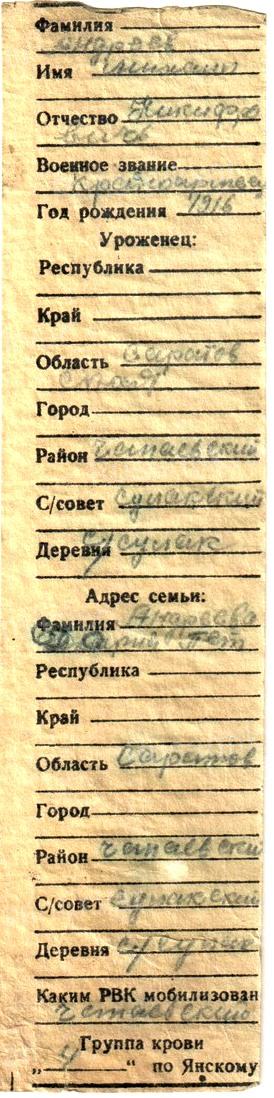 Фамилия
Андреев
Имя Михаил
Отчество Никифо
Военное звание
Красноармеец
Год рождения 1916
Уроженец:
Республика
Край
Область Саратов
Город
Район Чапаевский
С/совет Сулакский
Деревня с/ Сулак
Адрес семьи:
Фамилия Андреева
Республика
Край
Область Саратов
Город
Район Чапаевский
С/совет Сулакский
Деревня с/ Сулак
Каким РВК мобилизован
Чапаевский
Группа крови
„ “ по Янскому